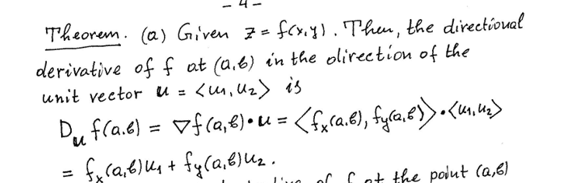 - 4 -
Theorem. (a) Given z = f(x,y). Then, the directional
derivative of f at (a,b) in the direction of the
unit vector u = <u₁, u₂> is
D_u f(a,b) = ∇f(a,b)•u = <f_x(a,b), f_y(a,b)>•<u₁,u₂>
= f_x(a,b)u₁ + f_y(a,b)u₂.
of f at the point (a,b)